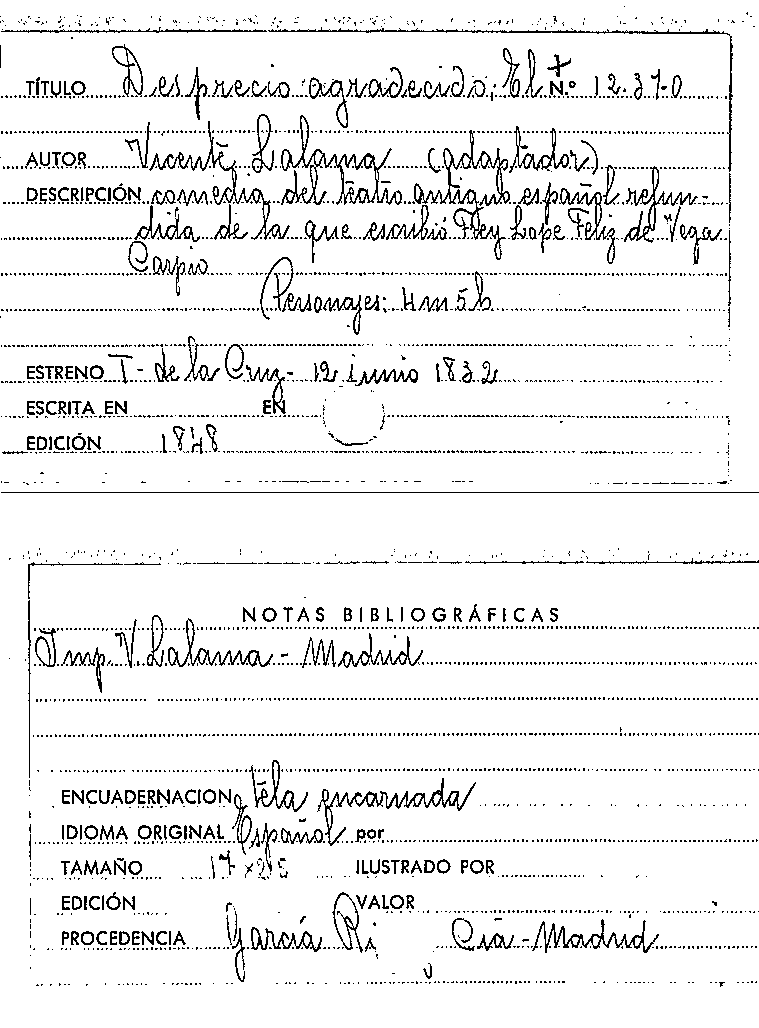 TÍTULO Desprecio agradecido, El N.º 12.370
AUTOR Vicente Lalama (adaptador)
DESCRIPCIÓN comedia del teatro antiguo español refun-
dida de la que escribió Frey Lope Feliz de Vega
Carpio
Personajes: 4m 5h
ESTRENO T- de la Cruz- 12 junio 1832
ESCRITA EN EN
EDICIÓN 1848
NOTAS BIBLIOGRÁFICAS
Imp. V. Lalama - Madrid
ENCUADERNACION tela encarnada
IDIOMA ORIGINAL Español por
TAMAÑO 17 x 25 ILUSTRADO POR
EDICIÓN VALOR
PROCEDENCIA García Ri Cía - Madrid